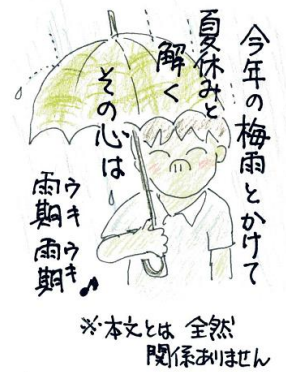 今年の梅雨とかけて
夏休みと
解く
その心は
雨期 雨期♪
ウキ ウキ
※本文とは 全然
関係ありません